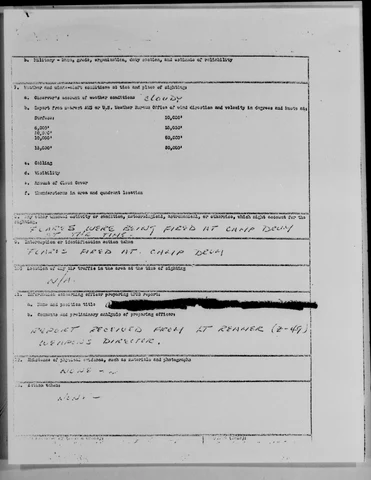 b. Military - Name, grade, organization, duty section, and estimate of reliability
7. Weather and winds-aloft conditions at time and place of sightings
a. Observer's account of weather conditions CLOUDY
b. Report from nearest AWS or U.S. Weather Bureau Office of wind direction and velocity in degrees and knots at:
Surface: 10,000'
6,000' 20,000'
10,000' 30,000'
10,000' 50,000'
15,000' 80,000'
c. Ceiling
d. Visibility
e. Amount of cloud cover
f. Thunderstorms in area and quadrant location
8. Any other unusual activity or condition, meteorological, astronomical, or otherwise, which might account for the sighting.
FLARES WERE BEING FIRED AT CAMP DRUM
AT THE TIME.
9. Interception or identification action taken
FLARES FIRED AT CAMP DRUM
10. Location of any air traffic in the area at the time of sighting
N/A.
11. Information concerning officer preparing this report:
a. Name and position title
b. Comments and preliminary analysis of preparing officer:
REPORT RECEIVED FROM LT (Z-49)
WEAPONS DIRECTOR.
12. Existence of physical evidence, such as materials and photographs
NONE -
Action taken:
NONE -